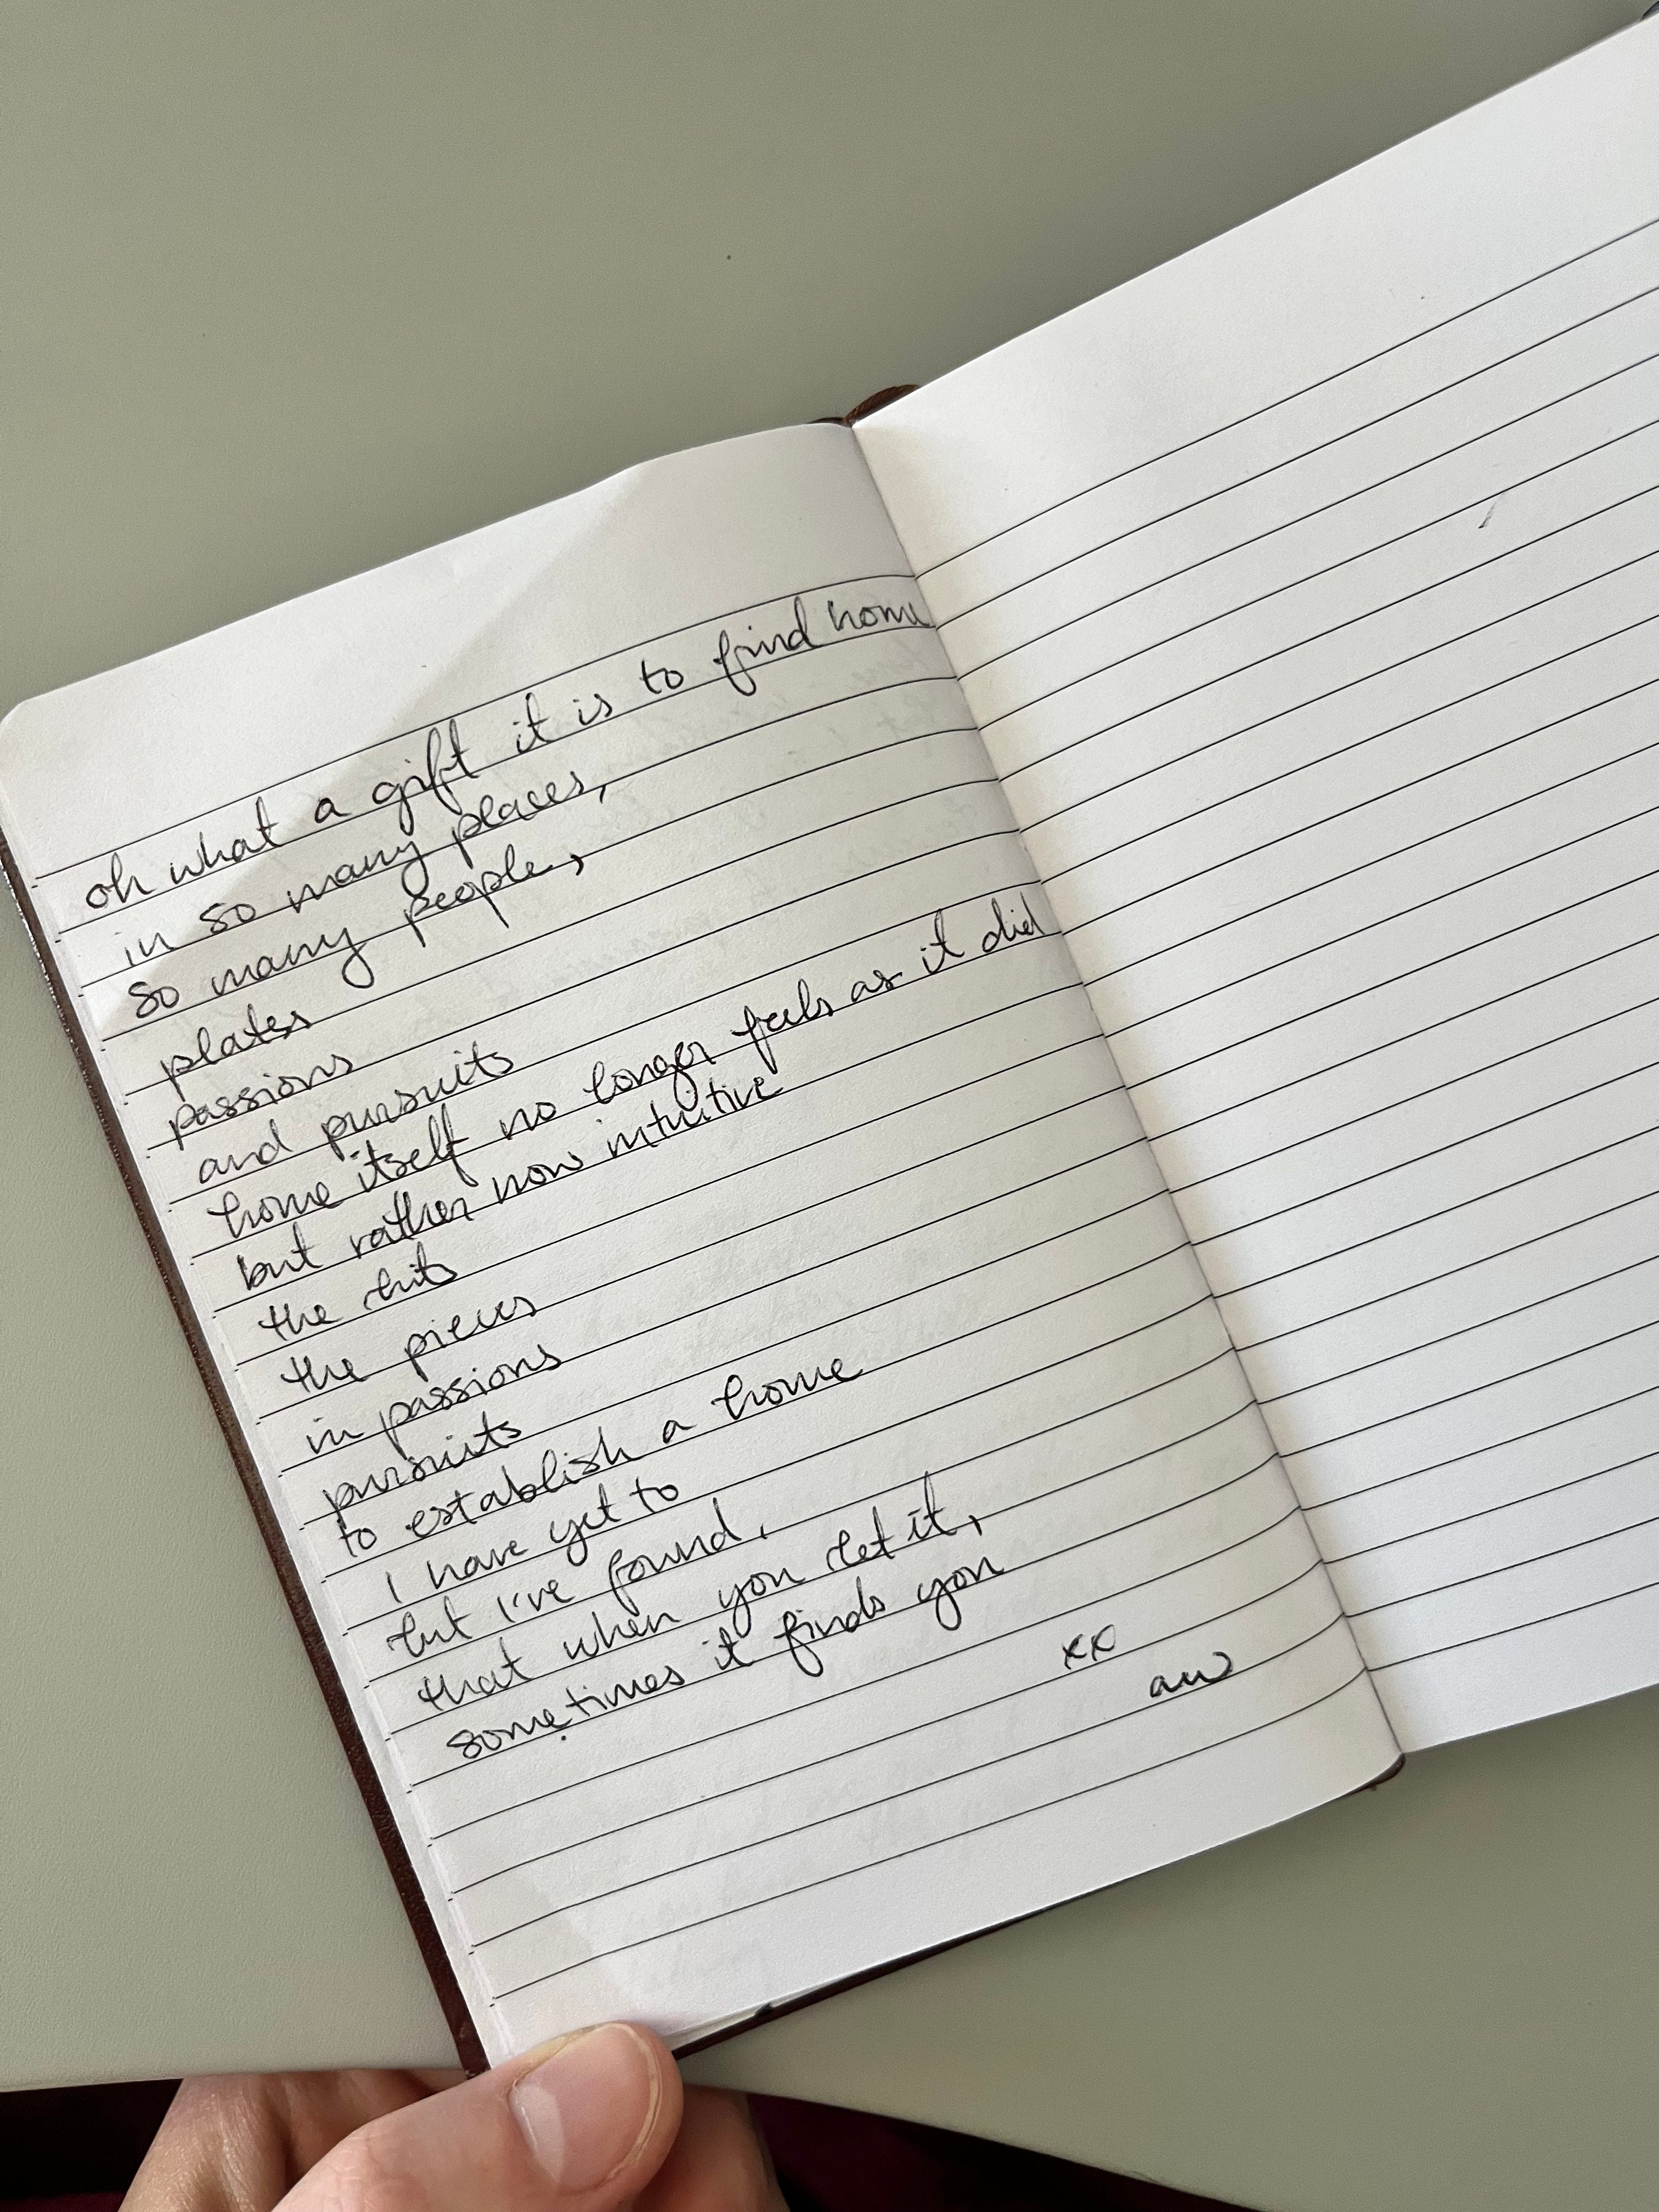 oh what a gift it is to find home
in so many places,
so many people,
plates
passions
and pursuits
home itself no longer feels as it did
but rather now intuitive
the bits
the pieces
in passions
pursuits
to establish a home
I have yet to
but I've found,
that when you let it,
sometimes it finds you
xx
aw